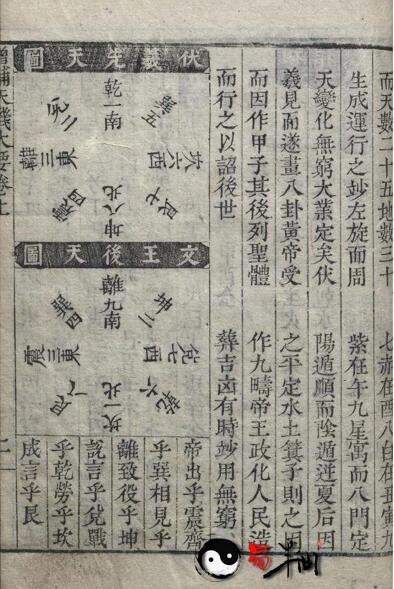 而天數二十五地數三十
生成運行之妙左旋而周
天變化無窮大業定矣伏
羲見而遂畫八卦黃帝受
而因作甲子其後列聖體
而行之以詔後世
七赤在酉八白在丑寅九
紫在午九星寓而八門定
陽遁順而陰遁逆夏后因
之平定水土箕子則之因
作九疇帝王政化人民造
葬吉凶有時妙用無窮
伏羲先天圖
乾一南
兌二
離三東
震四
巽五
坎六西
艮七
坤八北
文王後天圖
離九南
坤二
兌七西
乾六
坎一北
艮八
震三東
巽四
帝出乎震齊
乎巽相見乎
離致役乎坤
說言乎兌戰
乎乾勞乎坎
成言乎艮
增補天機大要卷上
易半仙